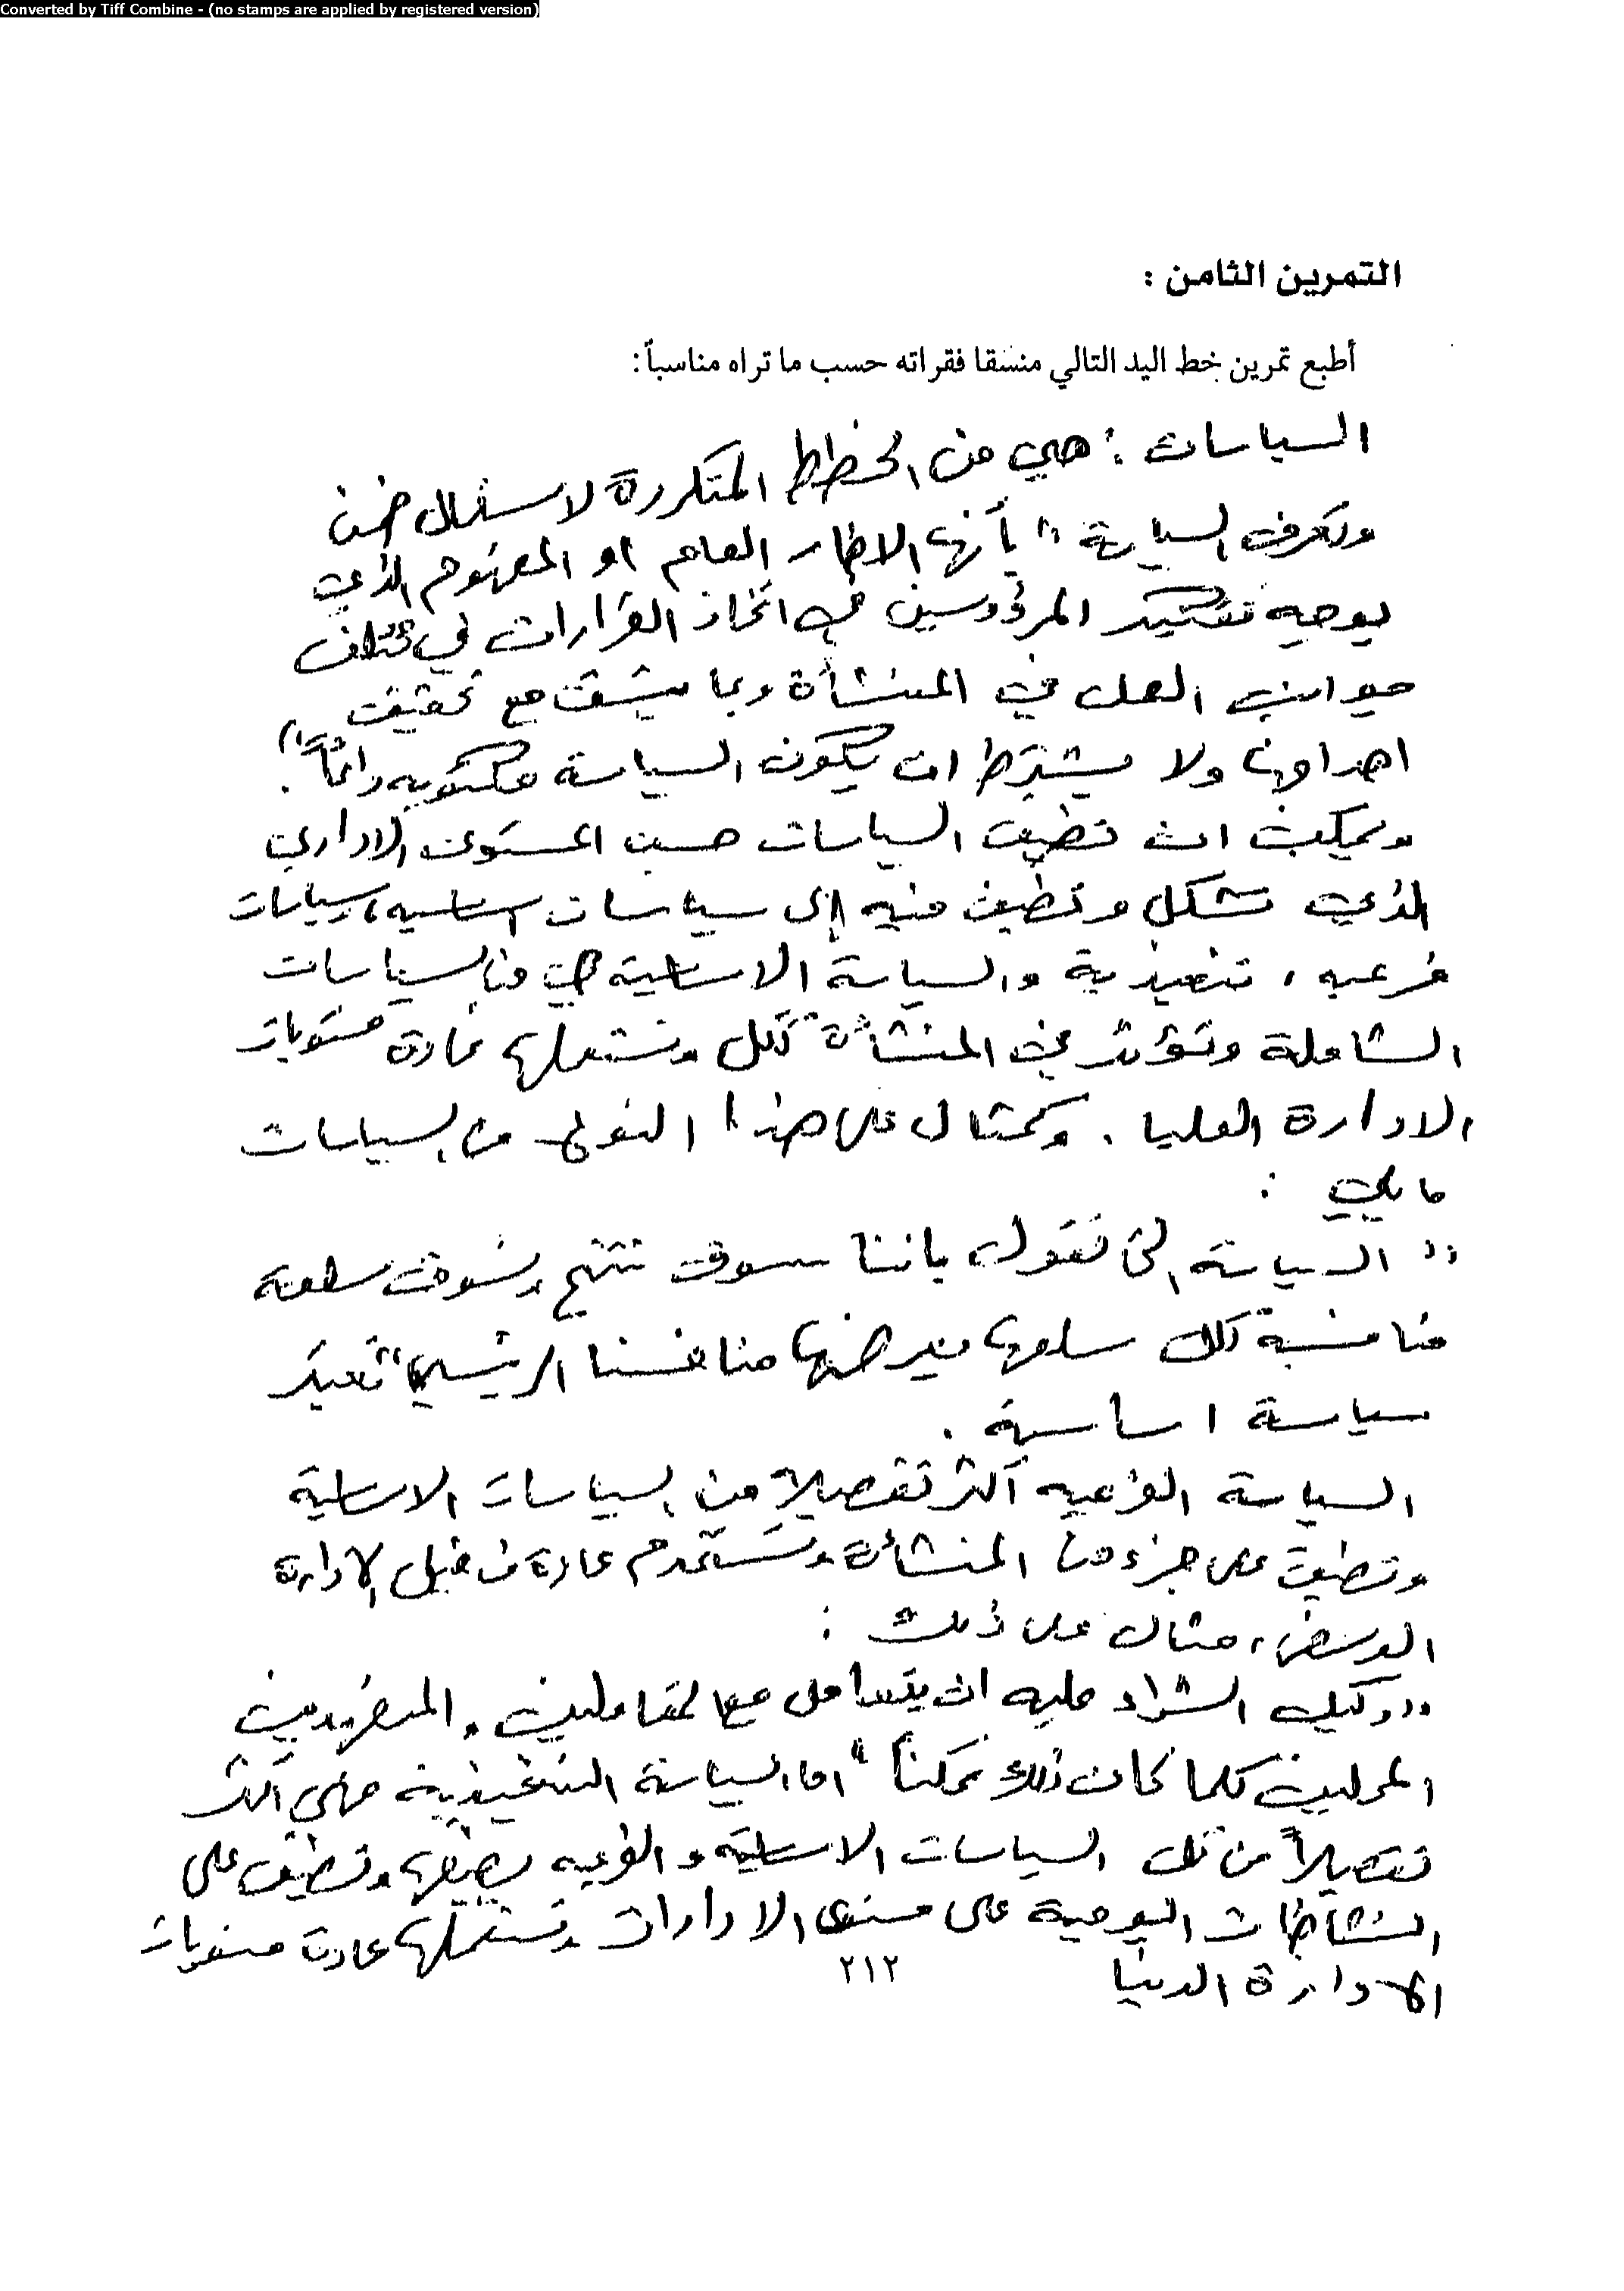 Converted by Tiff Combine - (no stamps are applied by registered version)
التمرين الثامن :
أطبع تمرين بخط اليد التالي منسقا فقراته حسب ما تراه مناسباً :
السياسات : هي من الخطط المتكررة الاستعمال ضمن
وتعرف السياسة " بأنها الاطار العام او المفهوم الذي
يوجه تفكير المرؤوسين في اتخاذ القرارات في مختلف
جوانب العمل في المنشأة وبما يتسق مع تحقيق
اهدافها ولا يشترط ان تكون السياسة مكتوبه دائماً " .
ويمكن ان تصنف السياسات حسب المستوى الاداري
الذي تشكل وتطبق فيه إلى سياسات اساسيه ، وسياسات
فرعيه ، تنفيذية والسياسة الاساسية هي من السياسات
الشاملة وتؤثر في المنشأة ككل وتستعملها عادة مستويات
الادارة العليا . وكمثال على هذا النوع من السياسات
ما يلي :
" السياسة التي تقول باننا سوف ننتج ونسوق سلعة
منافسة لكل سلعة يعرضها منافسنا الرئيسي " تعتبر
سياسة اساسية .
السياسة الفرعيه أكثر تفصيلا من السياسات الاساسية
وتطبق على جزء من المنشأة وتستخدم عادة من قبل الادارة
الوسطى ، مثال على ذلك :
" وكيل الشراء عليه ان يتعامل مع المقاولين والمتعهدين
المحليين كلما كان ذلك ممكناً " اما السياسة التنفيذية فهي أكثر
تفصيلاً من تلك السياسات الاساسية والفرعيه وتطبق على
النشاطات اليومية على مستوى الادارات وتستعملها عادة مستويات
الادارة الدنيا
٢١٢